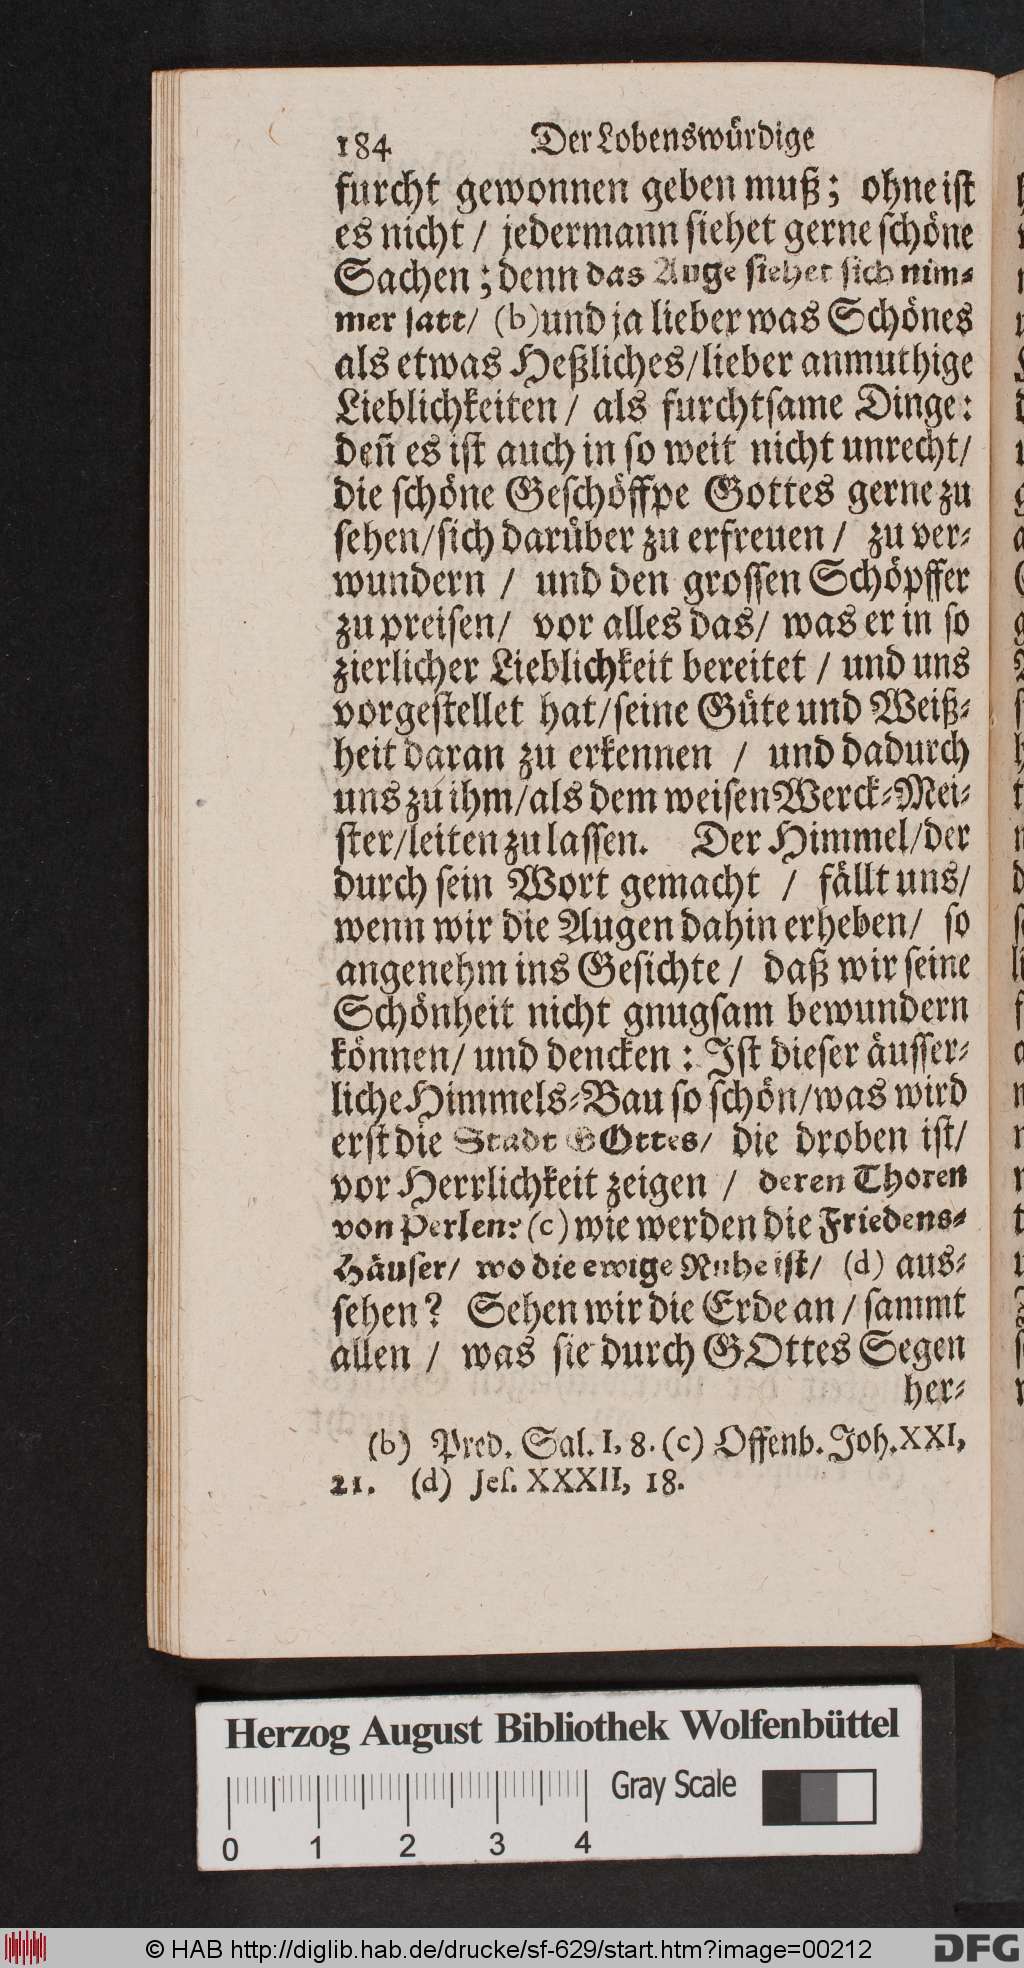 184 Der Lobenswürdige
furcht gewonnen geben muß; ohne ist
es nicht / jedermann siehet gerne schöne
Sachen; denn das Auge siehet sich nim-
mer satt/ (b) und ja lieber was Schönes
als etwas Heßliches/lieber anmuthige
Lieblichkeiten / als furchtsame Dinge:
deñ es ist auch in so weit nicht unrecht/
die schöne Geschöffpe Gottes gerne zu
sehen/sich darüber zu erfreuen / zu ver-
wundern / und den grossen Schöpffer
zu preisen/ vor alles das/ was er in so
zierlicher Lieblichkeit bereitet / und uns
vorgestellet hat/seine Güte und Weiß-
heit daran zu erkennen / und dadurch
uns zu ihm/als dem weisen Werck-Mei-
ster/leiten zu lassen. Der Himmel/der
durch sein Wort gemacht / fällt uns/
wenn wir die Augen dahin erheben/ so
angenehm ins Gesichte / daß wir seine
Schönheit nicht gnugsam bewundern
können/ und dencken: Ist dieser äusser-
liche Himmels-Bau so schön/was wird
erst die Stadt GOttes/ die droben ist/
vor Herrlichkeit zeigen / deren Thoren
von Perlen? (c) wie werden die Friedens-
Häuser/ wo die ewige Ruhe ist/ (d) aus-
sehen? Sehen wir die Erde an / sammt
allen / was sie durch GOttes Segen
her-
(b) Pred. Sal. I, 8. (c) Offenb. Joh. XXI,
21. (d) Jes. XXXII, 18.
Herzog August Bibliothek Wolfenbüttel
Gray Scale
0 1 2 3 4
© HAB http://diglib.hab.de/drucke/sf-629/start.htm?image=00212
DFG